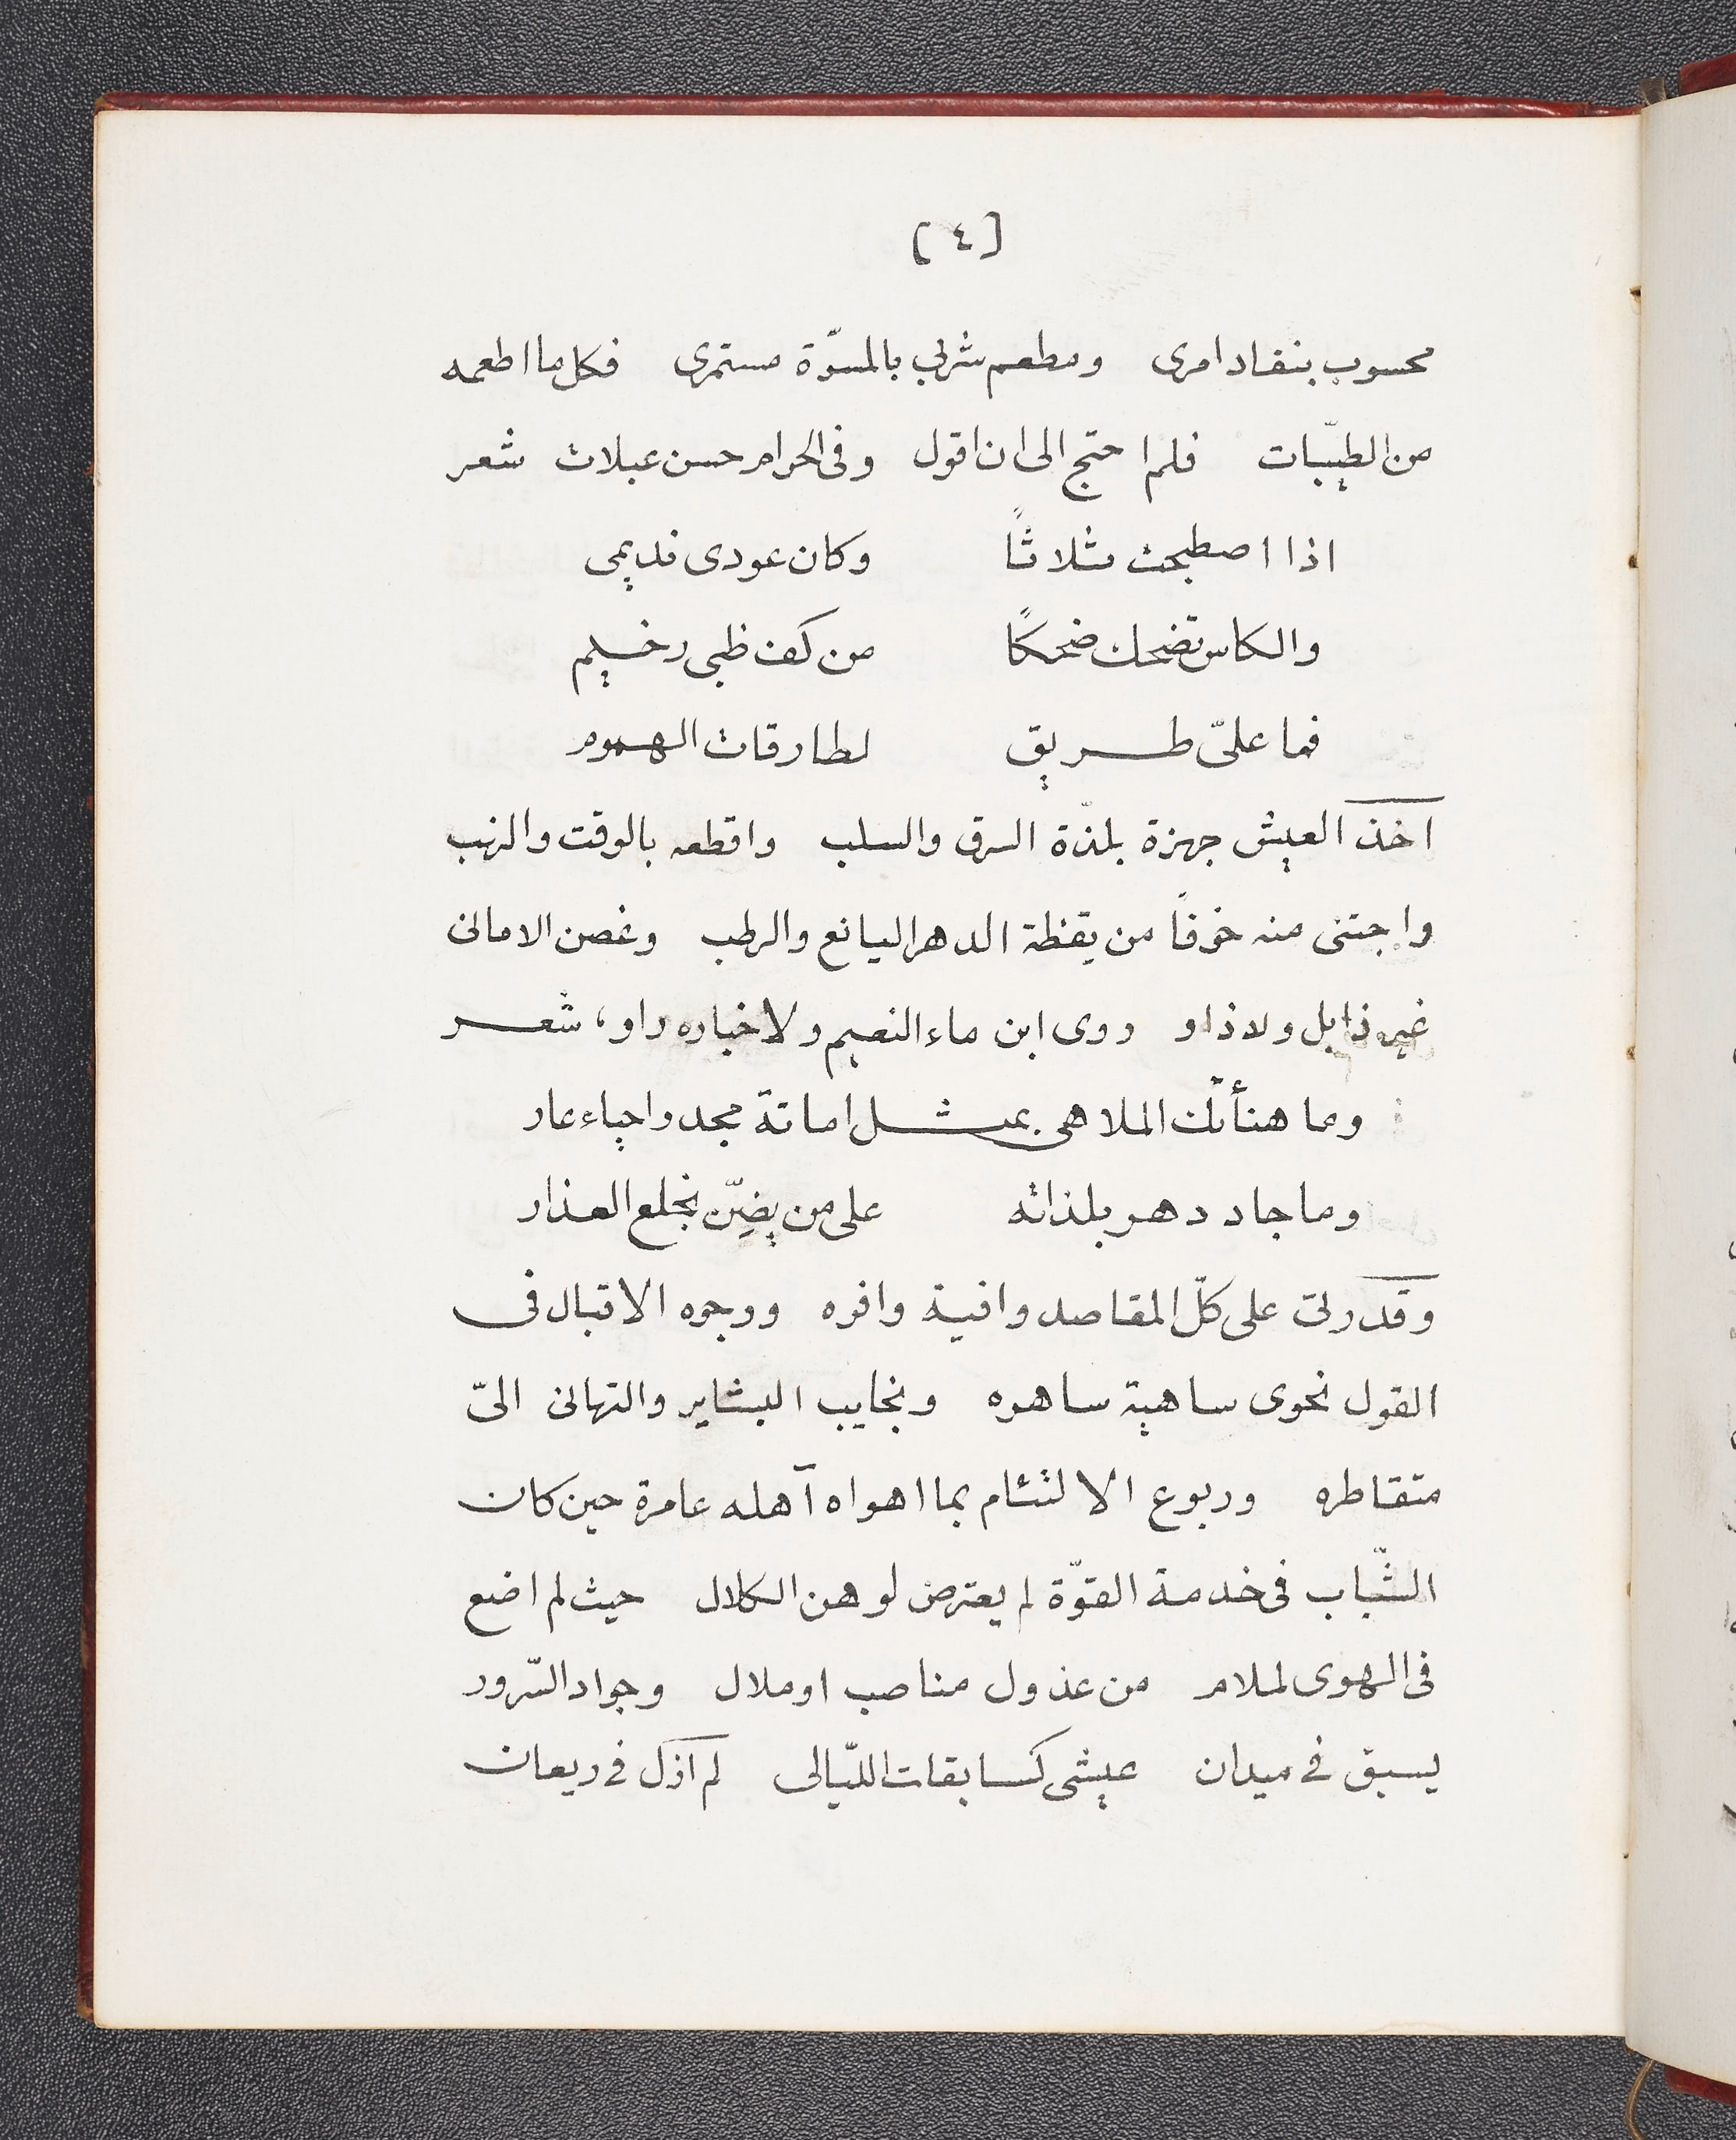 [٤]
محسوب بنفاد امری ومطعم شربی بالمسرّة مستمری فكل ما اطعمه
من الطيّبات فلم احتج الى ان اقول وفى الحرام حسن عبلات شعر
اذا اصطبحت ثلاثاً وكان عودى نديمى
والكاس تضحك ضحكاً من كف ظبى رخيم
فما علىّ طريق لطارقات الهموم
اخذ العيش جهزة بلذّة السرق والسلب واقطعه بالوقت والنهب
واجتنى منه خوفاً من يقظة الدهر اليانع والرطب وغصن الامانى
غير ذابل ولا ذاو وروى ابن ماء النعيم ولاخباره راو، شعر
وما هنأتك الملاهى بمثل اماتة مجد واحياء عار
وما جاد دهر بلذاته على من يضِنّ بخلع العذار
وقدرتى على كلّ المقاصد وافية وافره ووجوه الاقبال فى
القول نحوى ساهية ساهره ونجايب البشاير والتهانى الىّ
متقاطره وربوع الالتئام بما اهواه آهله عامرة حين كان
الشّباب فى خدمة القوّة لم يعترض لوهن الكلال حيث لم اضع
فى الهوى لملام من عذول مناصب او ملال وجواد السّرور
يسبق فى ميدان عيشى كسابقات اللّيالى لم ازل فى ريعان